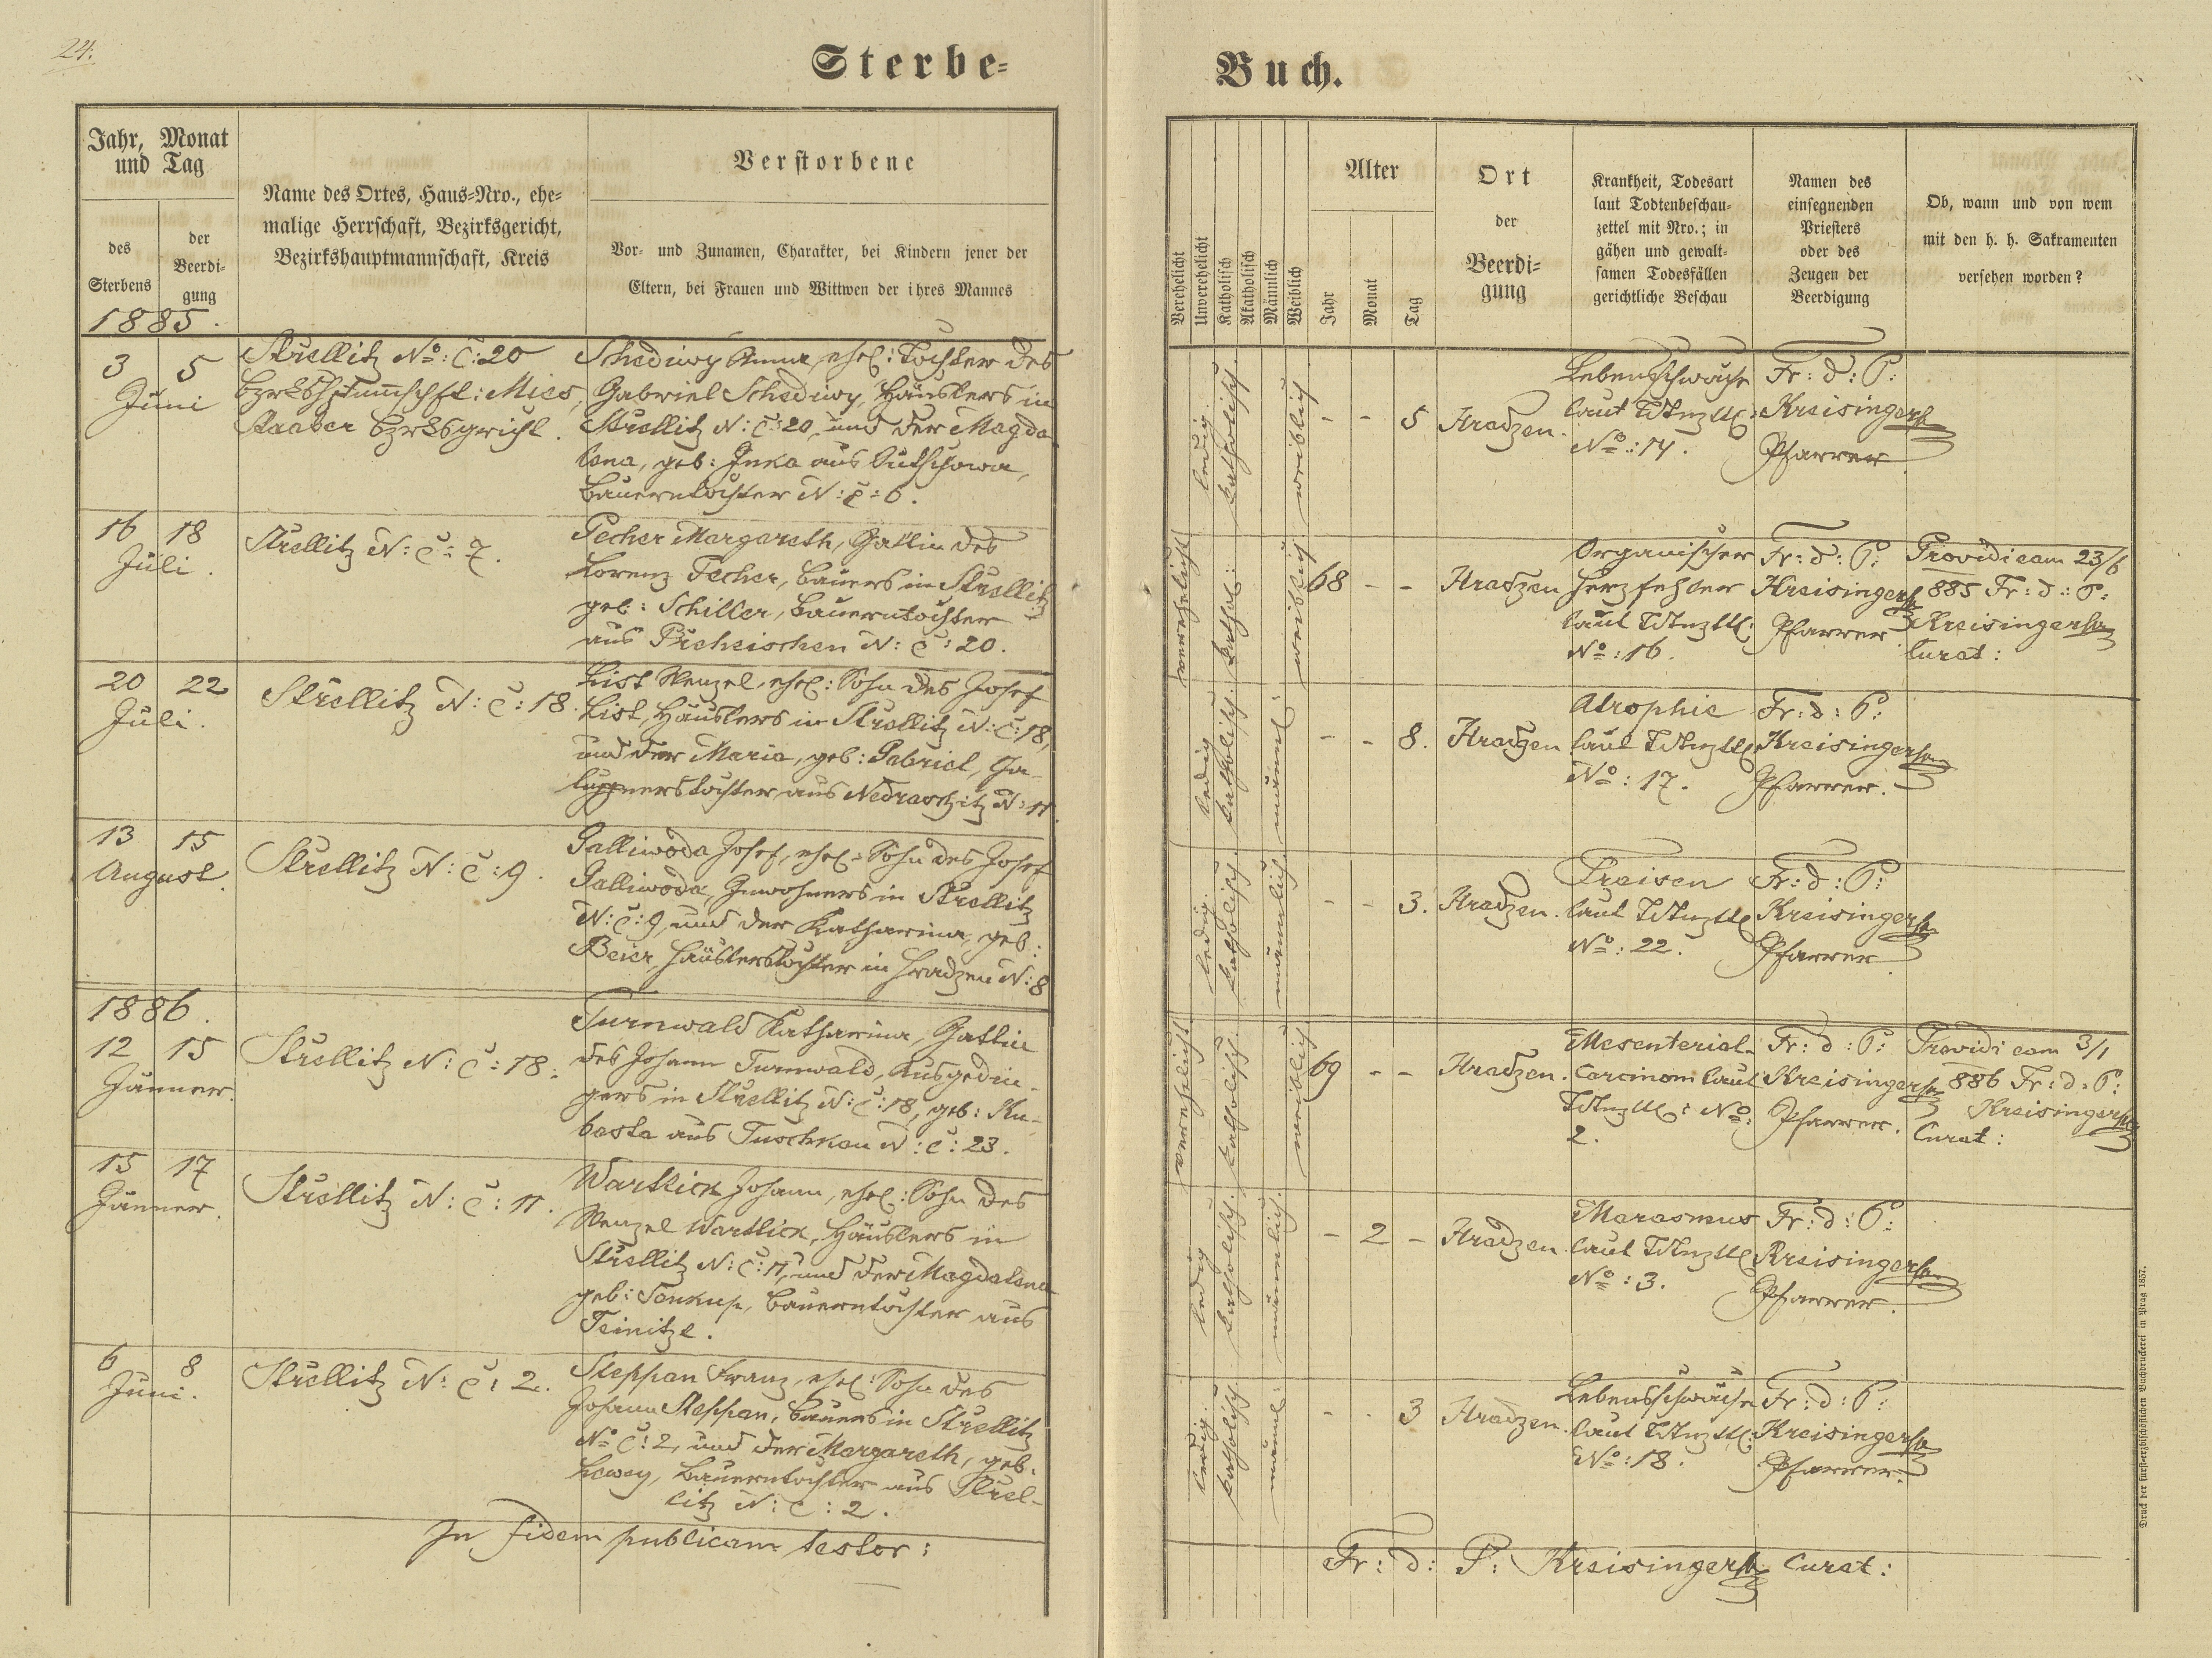 24.
Sterbe-
Jahr, Monat
und Tag
des
Sterbens
der
Beerdi-
gung
Name des Ortes, Haus-Nro., ehe-
malige Herrschaft, Bezirksgericht,
Bezirkshauptmannschaft, Kreis
Verstorbene
Vor- und Zunamen, Charakter, bei Kindern jener der
Eltern, bei Frauen und Wittwen der ihres Mannes
1885.
3 5
Juni
Strellitz No: C: 20
Mies,
Staaber
Schediwy Anna, ehel: Tochter des
Gabriel Schediwy, Häuslers in
Strellitz N: C: 20, und der Magda
lena, geb: aus
Bauerntochter N: C: 6.
16 18
Juli.
Strellitz N: C: 7.
Pecher Margareth, Gattin des
Lorenz Pecher, Bauers in Strellitz
geb: Schiller, Bauerntochter
aus N: C: 20.
20 22
Juli.
Strellitz N: C: 18.
List Wenzel, ehel: Sohn des Josef
List, Häuslers in Strellitz N: C: 18,
und der Maria, geb: Gabriel,
tochter aus Nedraschitz N: 11.
13 15
August.
Strellitz N: C: 9.
Galliwoda Josef, ehel: Sohn des Josef
Galliwoda, Inwohners in Strellitz
N: C: 9, und der Katharina, geb:
Beier, Häuslerstochter in Hradzen N: 8
1886.
12 15
Jänner.
Strellitz N: C: 18.
Turnwald Katharina, Gattin
des Johann Turnwald, Ausgedin-
gers in Strellitz N: C: 18, geb: Ku-
basta aus Tuschkau N: C: 23.
15 17
Jänner.
Strellitz N: C: 11.
Wartlick Johann, ehel: Sohn des
Wenzel Wartlick, Häuslers in
Strellitz N: C: 11, und der Magdalena
geb: Soukup, Bauerntochter aus
Teinitzl.
6 8
Juni.
Strellitz N: C: 2.
Steppan Franz, ehel: Sohn des
Johann Steppan, Bauers in Strellitz
No C: 2, und der Margareth, geb:
Bauerntochter aus Strel-
litz N: C: 2.
In fidem publicam testor:
Buch.
Verehelicht
Unverehelicht
Katholisch
Akatholisch
Männlich
Weiblich
Alter
Jahr
Monat
Tag
Ort
der
Beerdi-
gung
Krankheit, Todesart
laut Todtenbeschau-
zettel mit Nro.; in
gähen und gewalt-
samen Todesfällen
gerichtliche Beschau
Namen des
einsegnenden
Priesters
oder des
Zeugen der
Beerdigung
Ob, wann und von wem
mit den h. h. Sakramenten
versehen worden?
ledig.
katholisch.
weiblich
- - 5
Hradzen.
Lebensschwäche
laut
No: 14.
Fr: d: P:
Kreisinger
Pfarrer
verehelicht
kathol:
weiblich
68 - -
Hradzen
Organischer
Herzfehler
laut
No: 16.
Fr: d: P:
Kreisinger
Pfarrer
Providi eam 23/6
885 Fr: d: P:
Kreisinger
Curat:
ledig
katholisch.
männl:
- - 8.
Hradzen
Atrophie
laut
No: 17.
Fr: d: P:
Kreisinger
Pfarrer.
ledig.
katholisch.
männlich
- - 3.
Hradzen.
Fraisen
laut
No: 22.
Fr: d: P:
Kreisinger
Pfarrer.
verehelicht
katholisch.
weiblich
69 - -
Hradzen.
Mesenterial-
Carcinom laut
No:
2.
Fr: d: P:
Kreisinger
Pfarrer.
Providi eam 3/1
886 Fr: d: P:
Kreisinger
Curat:
ledig
katholisch.
männlich.
- 2 -
Hradzen
Marasmus
laut
No: 3.
Fr: d: P:
Kreisinger
Pfarrer.
ledig.
katholisch
männl:
- - 3
Hradzen.
Lebensschwäche
laut
No: 18.
Fr: d: P:
Kreisinger
Pfarrer.
Fr: d: P: Kreisinger Curat:
Druck der fürsterzbischöflichen Buchdruckerei in Prag 1857.